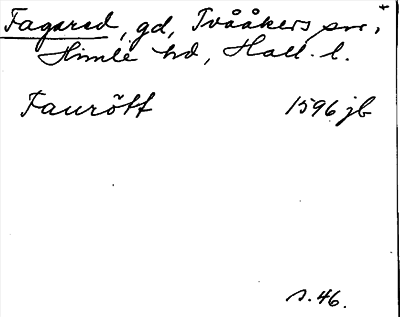 Fagared, gd, Tvååkers sn,
Himle hd, Hall. l.
Faurött 1596 jb
s. 46.